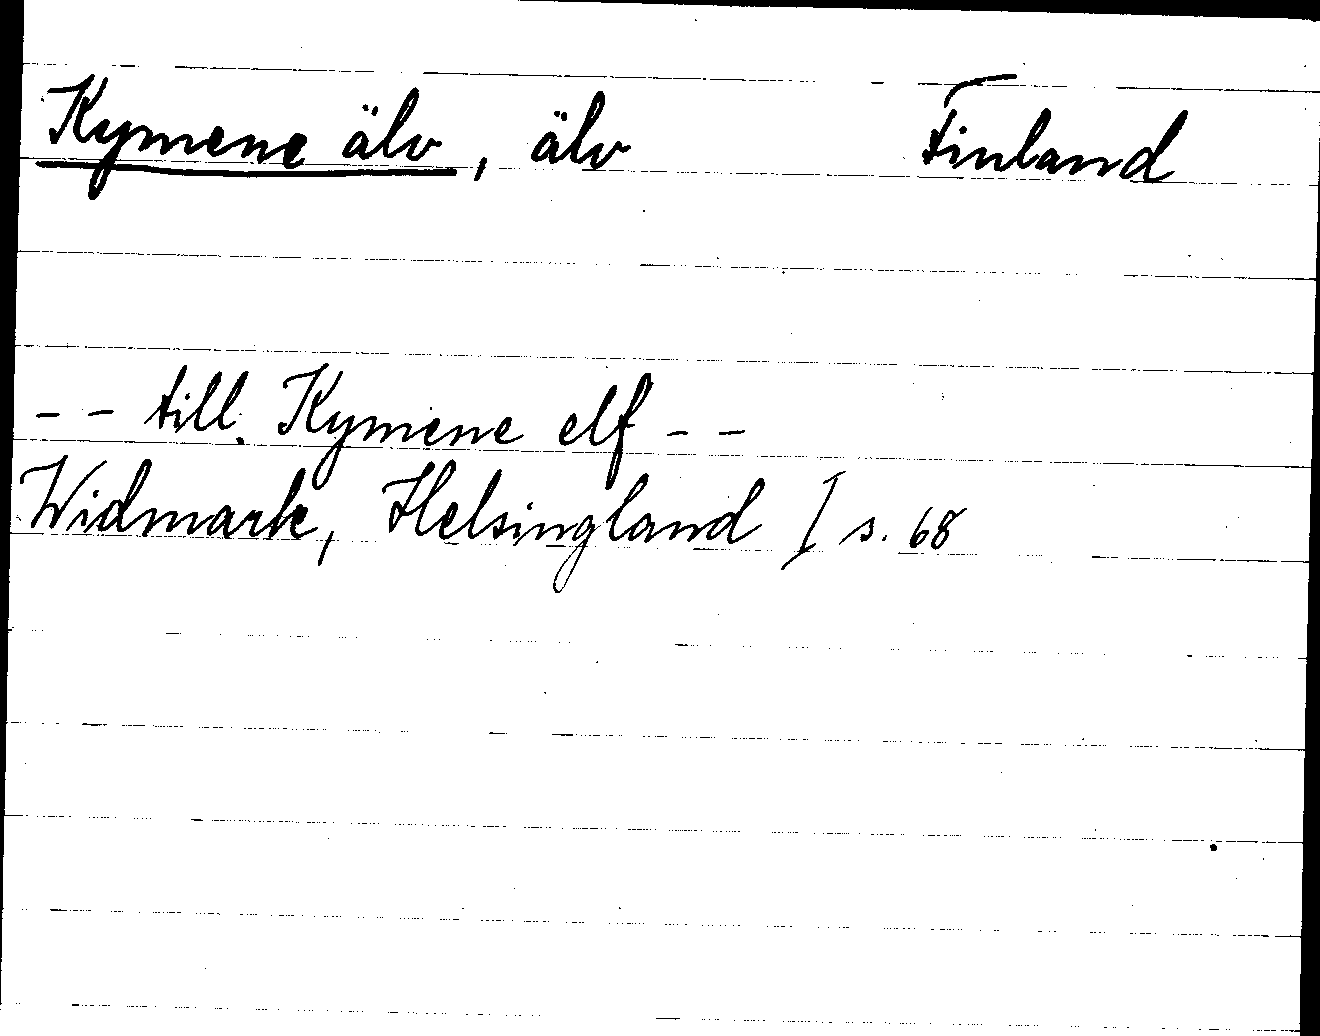 Kymene älv, älv Finland
-- till Kymene elf --
Widmark, Helsingland I s. 68